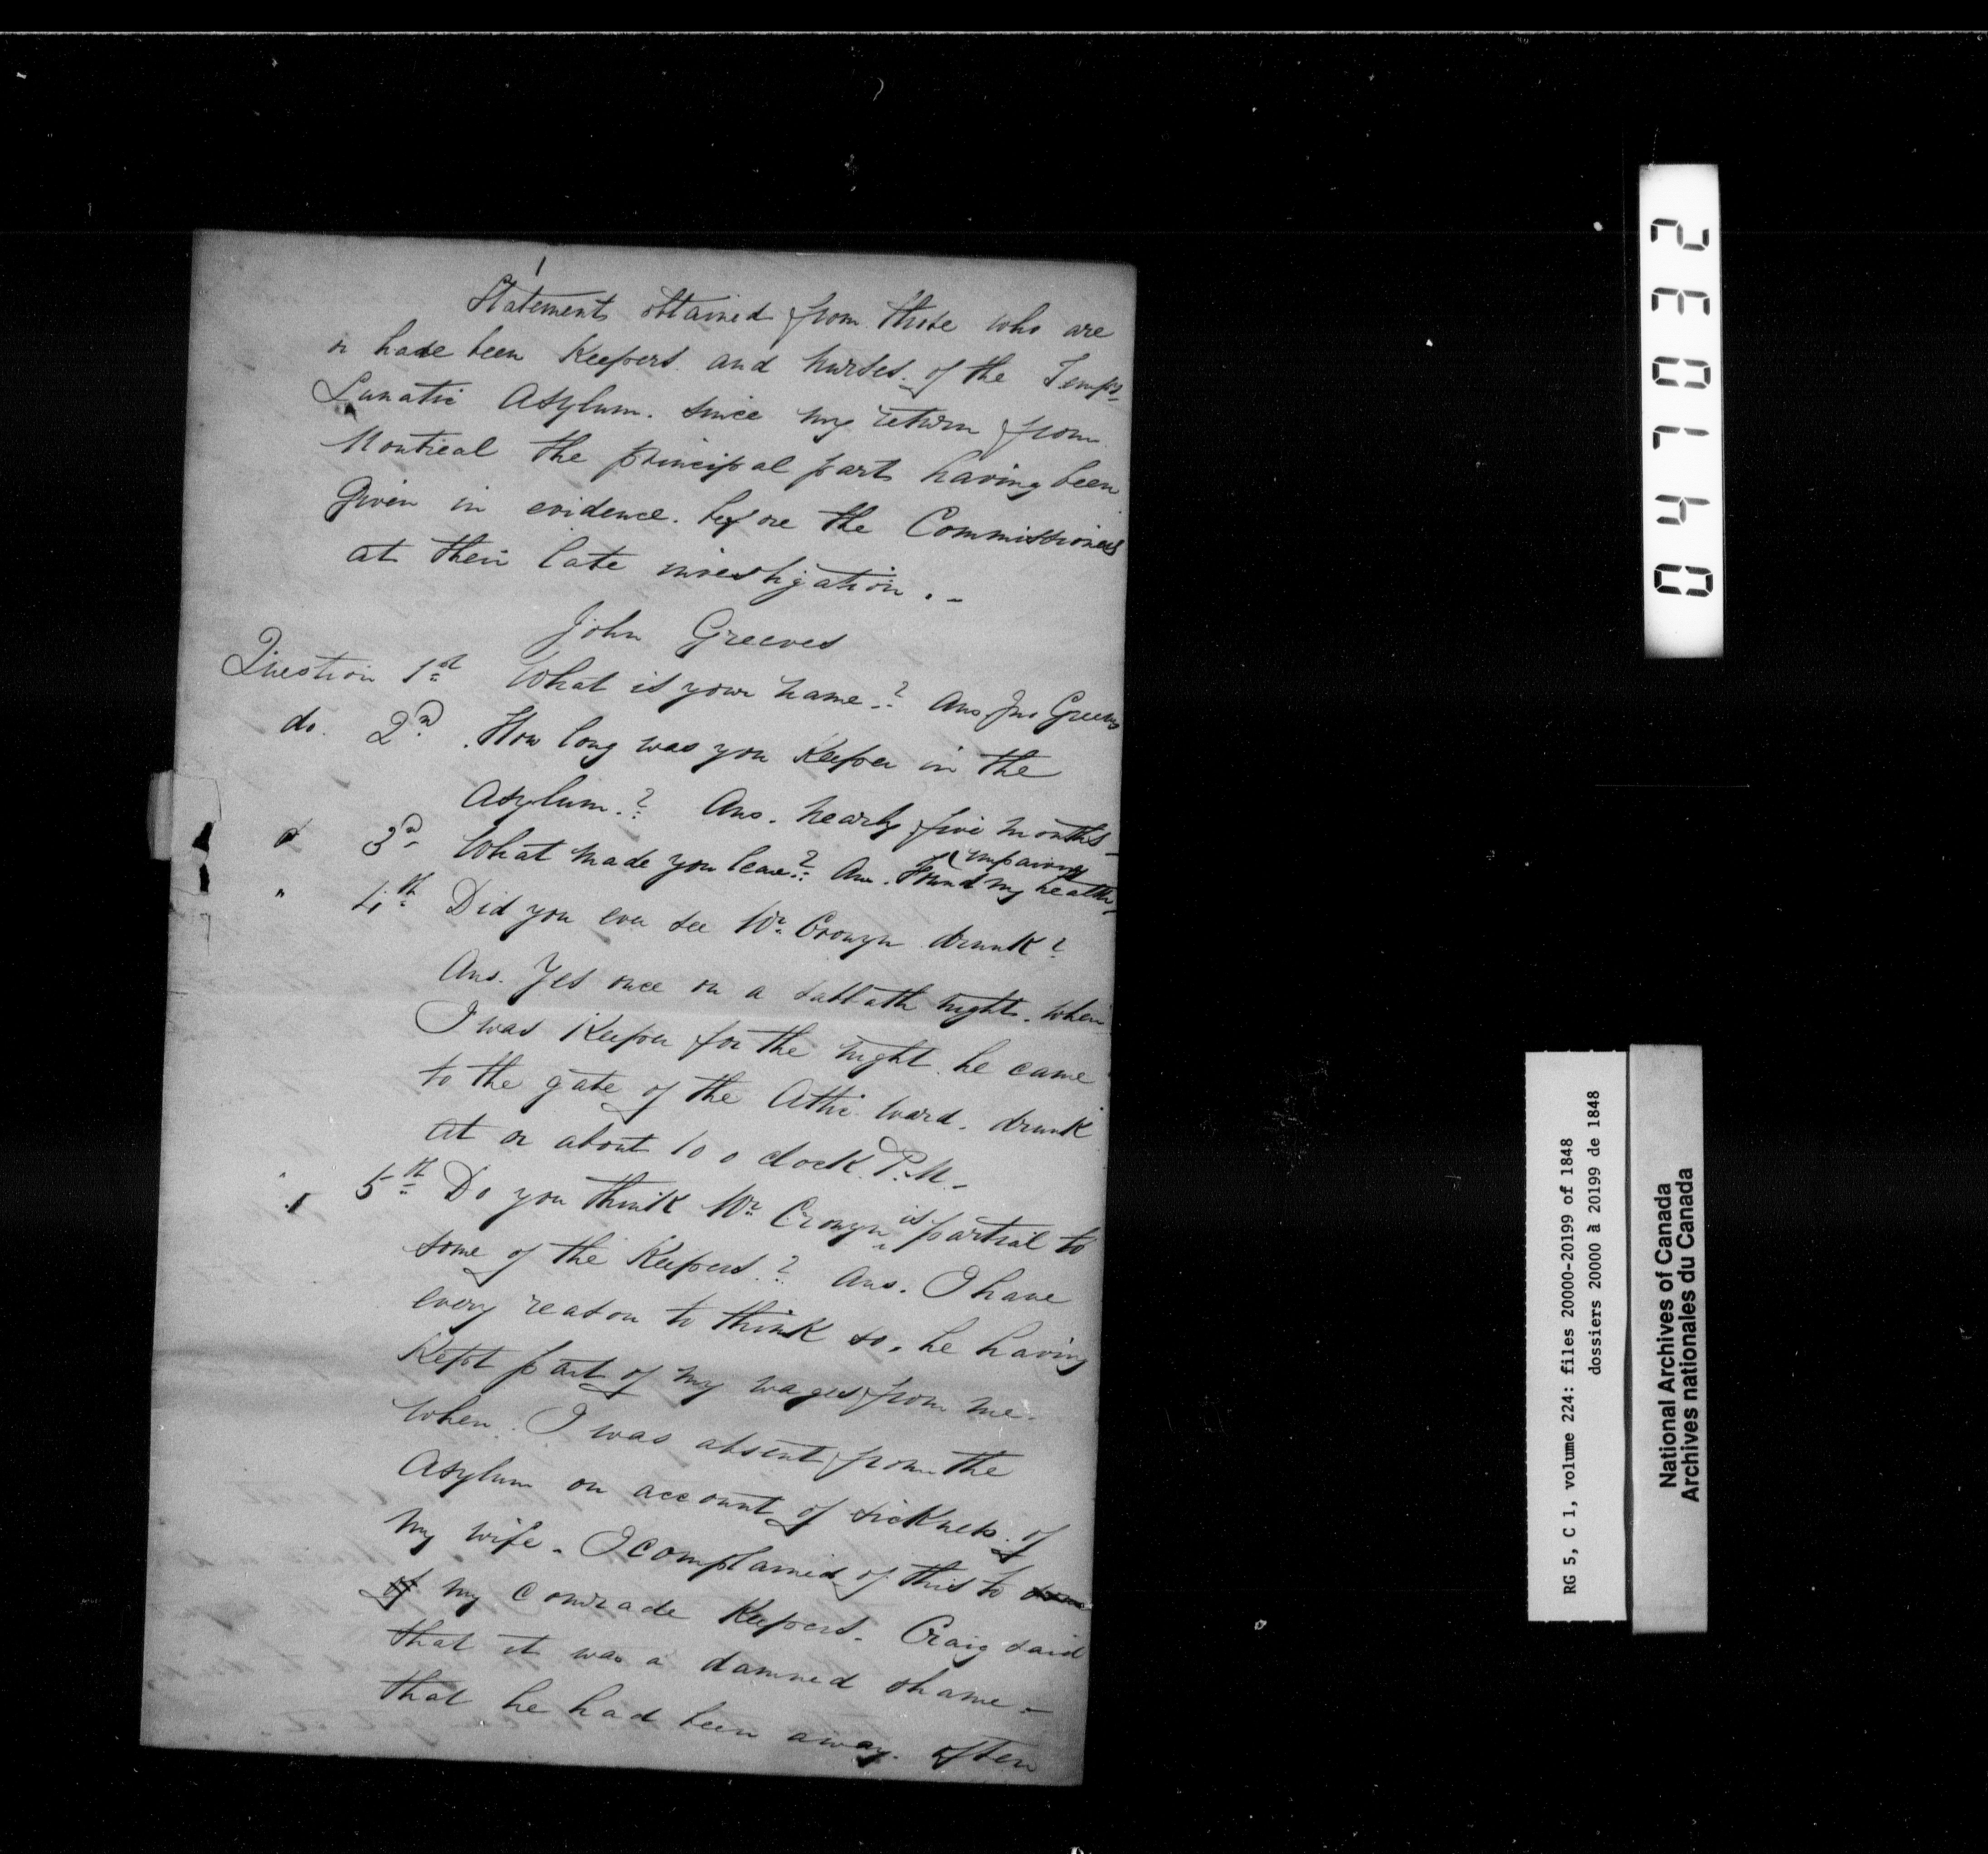 1
Statements obtained from those who are
or have been Keepers. and nurses. of the Tempy
Lunatic Asylum. since my return from
Montreal the principal part having been
Given in evidence. before the Commissioners
at their late investigation. -
John Greeves
Question 1st What is your name? Ans. Jno Greeves
do. 2d. How long was you Keeper in the
Asylum? Ans. nearly five months -
3d What made you leave? Ans. Found my health
impairing
" 4th Did you ever see Mr. Cronyn drunk?
Ans. Yes once on a sabbath night. when
I was Keeper for the night. he came
to the gate of the Attic Ward. drunk
at or about 10 o clock. P.M. -
" 5th Do you think Mr. Cronyn is partial to
some of the Keepers? Ans. I have
every reason to think so, he having
Kept part of my wages from me.
When. I was absent from the
Asylum on account of sickness. of
my wife. I complained of this to some
of my comrade Keepers. Craig said
that it was a damned shame -
that he had been away. often
047032
RG 5, C 1, volume 224: files 20000-20199 of 1848
dossiers 20000 à 20199 de 1848
National Archives of Canada
Archives nationales du Canada